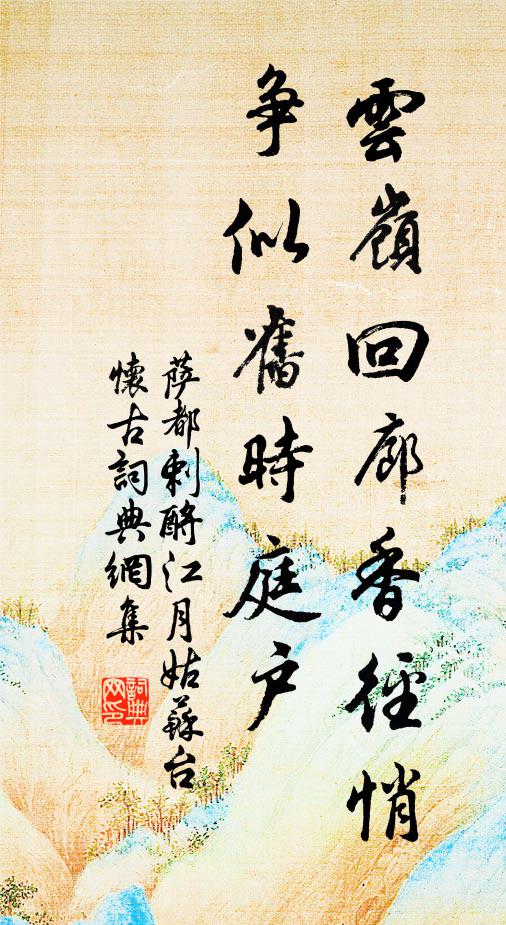 雲嶺回廊香徑悄
争似舊時庭户
萨都刺酹江月姑蘇台
懷古詞典網集
詞典
网印